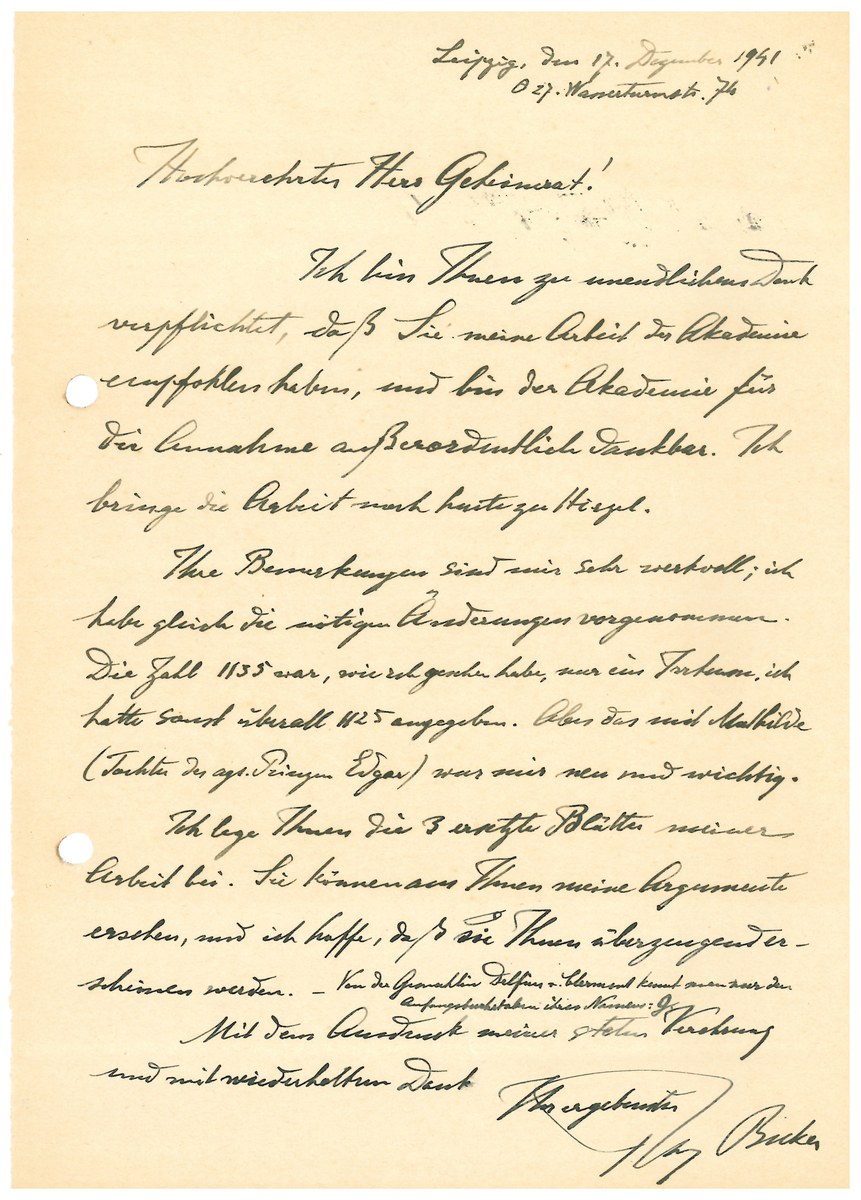 Leipzig, den 17. Dezember 1941
O 27. Wasserturmstr. 76
Hochverehrter Herr Geheimrat!
Ich bin Ihnen zu unendlichem Dank
verpflichtet, daß Sie meine Arbeit der Akademie
empfohlen haben, und bin der Akademie für
die Annahme außerordentlich dankbar. Ich
bringe die Arbeit noch heute zu Hirzel.
Ihre Bemerkungen sind mir sehr wertvoll; ich
habe gleich die nötigen Änderungen vorgenommen.
Die Zahl 1135 war, wie ich gesehen habe, nur ein Irrtum, ich
hatte sonst überall 1125 angegeben. Aber das mit Mathilde
(Tochter des ags. Prinzen Edgar) war mir neu und wichtig.
Ich lege Ihnen die 3 ersetzte Blätter meiner
Arbeit bei. Sie können aus Ihnen meine Argumente
ersehen, und ich hoffe, daß sie Ihnen überzeugend er-
scheinen werden. – Von der Gemahlin Delfins v. Clermont kennt man nur den
Anfangsbuchstaben ihres Namens: G.
Mit dem Ausdruck meiner steten Verehrung
und mit wiederholtem Dank
Ihr ergebenster
Becker